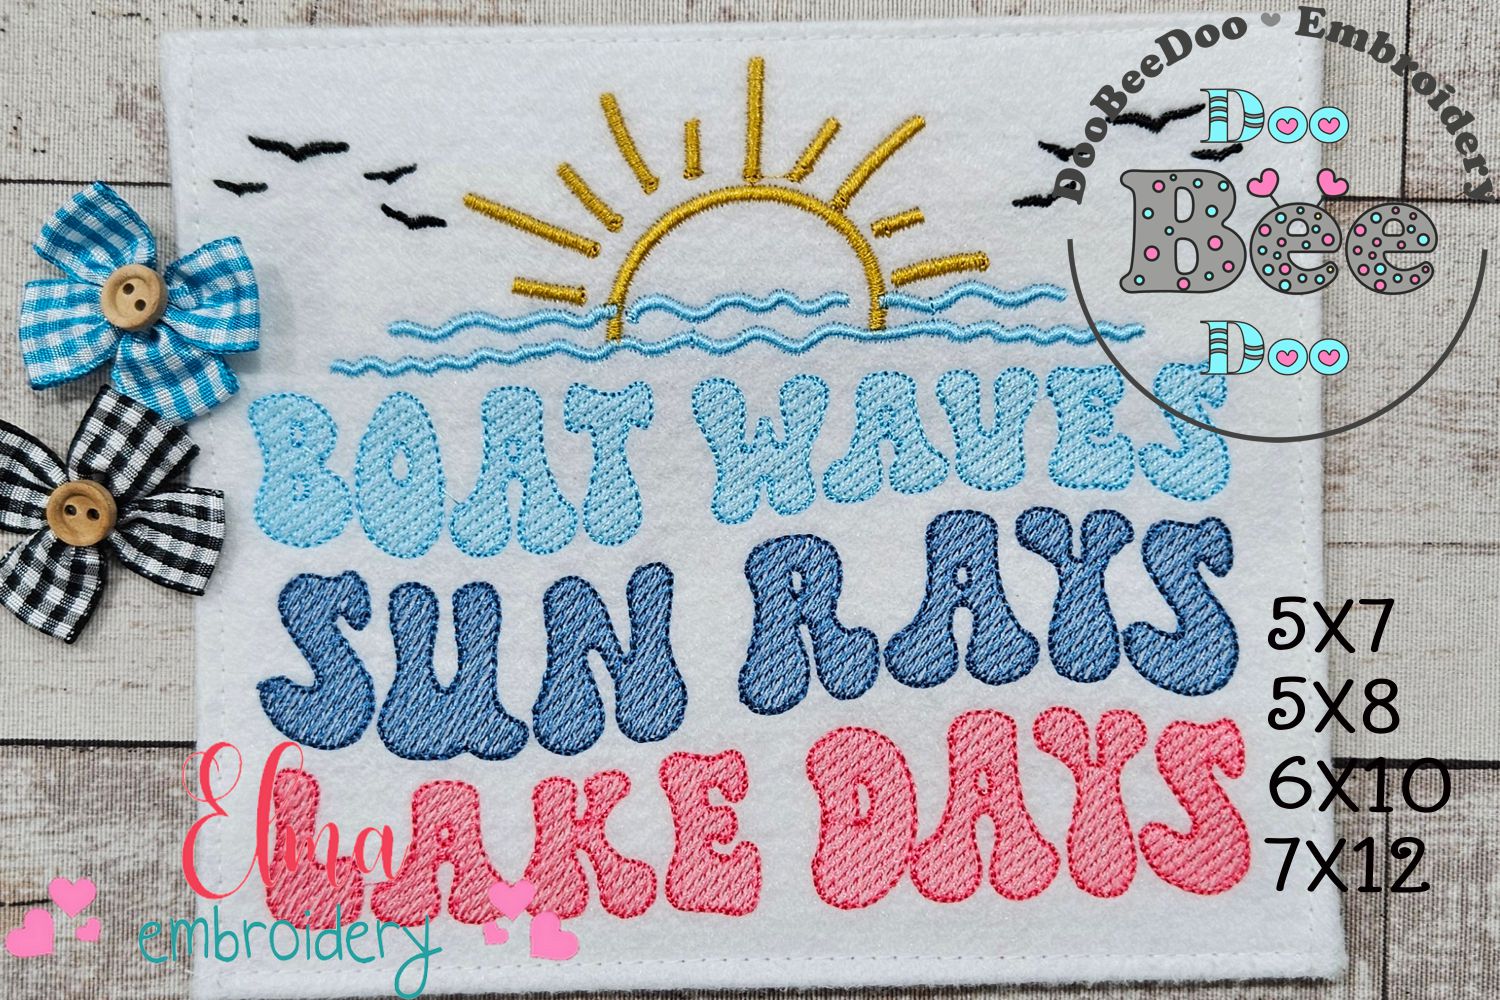 DooBeeDoo ♥ Embroidery
Doo
Bee
Doo
BOAT WAVES
SUN RAYS
LAKE DAYS
5X7
5X8
6X10
7X12
Elna
embroidery